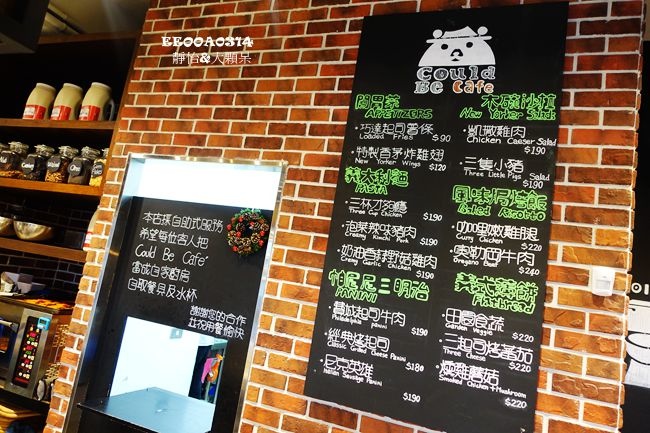 EE00A0374
靜怡&大顆呆
Could
Be Cafe
開胃菜
APPETIZERS
巧達起司薯條
Loaded Fries $90
特製香茅炸雞翅
New Yorker Wings $120
義大利麵
PASTA
三杯刀豬
Three Cup Chicken $190
泡菜辣味豬肉
Creamy Kimchi Pork $190
奶油香蒜野菇雞肉
Creamy Garlic Chicken $190
帕尼尼三明治
PANINI
費城起司牛肉
Philadelphia panini $190
經典烤起司
Classic Grilled Cheese Panini $180
尼克英雄
Italian Sausage Panini $190
木碗沙拉
New Yorker Salads
凱撒雞肉
Chicken Caeser Salad
$190
三隻小豬
Three Little Pigs Salad
$190
風味焗烤飯
Baked Risotto
咖哩嫩雞腿
Curry Chicken $220
奧勒岡牛肉
Oregano Beef $240
義式薄餅
Flatbread
田園食蔬
Garden Veggie $220
三起司烤蕃茄
Three Cheese $220
燻雞蘑菇
Smoked Chicken + Mushroom
$220
本店採自助式服務
希望每位客人把
Could Be Cafe'
當成自家廚房
自取餐具及水杯
謝謝您的合作
並祝用餐愉快